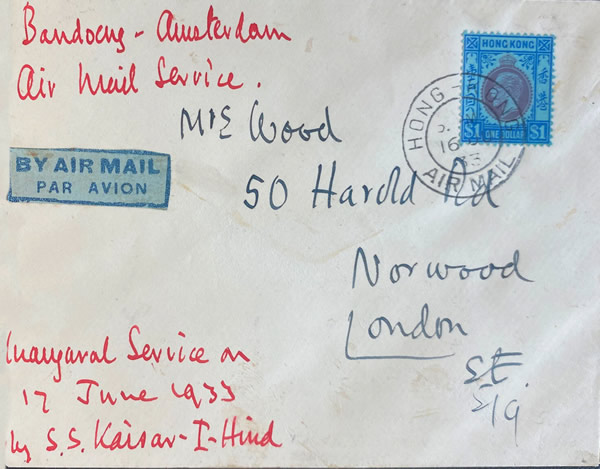 Bandoeng - Amsterdam
Air Mail Service.
HONG KONG
$1 ONE DOLLAR $1
HONG KONG
16
33
AIR MAIL
Mr E Wood
BY AIR MAIL
PAR AVION
50 Harold Rd
Norwood
London
Inaugaral Service on
17 June 1933
by S.S. Kaisar-I-Hind